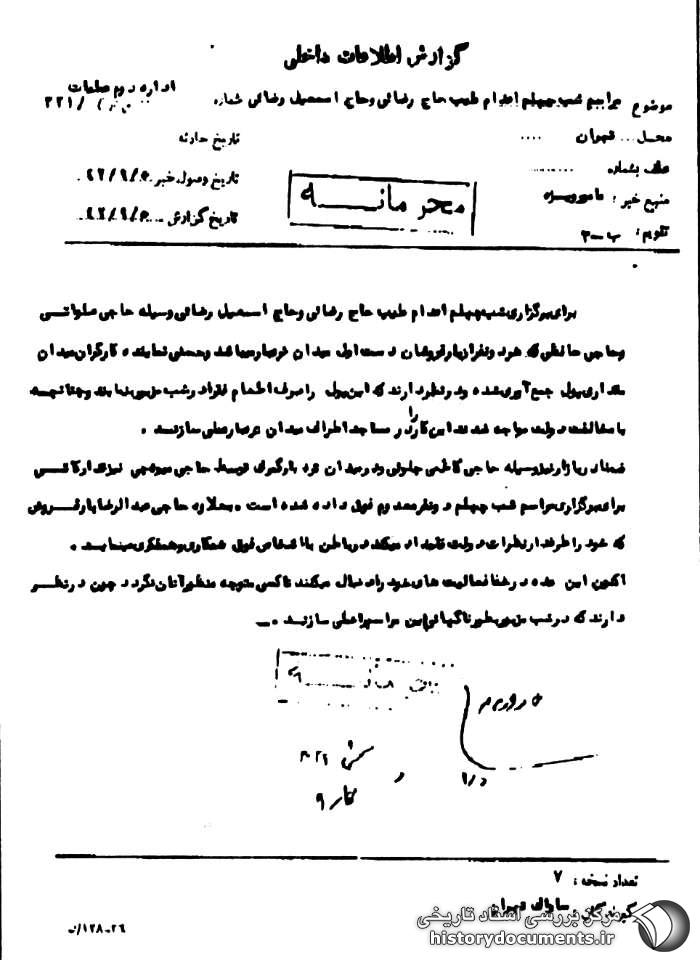 گزارش اطلاعات داخلی
اداره دوم عملیات
موضوع مراسم شب چهلم اعدام طیب حاج رضائی وحاج اسمعیل رضائی شماره /۳۲۱
محل... تهران ....
تاریخ حادثه
عطف بشماره ..........
تاریخ وصول خبر
منبع خبر :
محرمانه
تقویم : ب-۳
تاریخ گزارش
برای برگزاری شب چهلم اعدام طیب حاج رضائی وحاج اسمعیل رضائی وسیله حاجی صلواتی
وحاجی حافظی که هر دو نفر از بارفروشان دست اول میدان تره بار میباشد وحسنی نماینده کارگران میدان
مقداری پول جمع آوری شده و در نظر دارند که این پول را صرف اطعام فقرا در شب مزبور نمایند وچنانچه
با مخالفت دولت مواجه شدند این کار را در مساجد اطراف میدان تره بار عملی سازند .
ضمنا در بازار نیز وسیله حاجی کاظمی چلوئی و در میدان تره بار گیری توسط حاجی نیز تدارکاتی
برای برگزاری مراسم شب چهلم دو نفر معدوم فوق داده شده است . بعلاوه حاجی عبدالرضا بارفروش
که خود را طرفدار نظرات دولت قلمداد میکند در باطن با اشخاص فوق همکاری وهمفکری مینماید .
اکنون این عده در خفا فعالیت های خود را دنبال میکنند تا کسی متوجه منظور آنان نگردد چون در نظر
دارند که در شب مزبور بطور ناگهانی این مراسم را عملی سازند . ـ
تعداد نسخه : ۷
گیرندگان ساواک تهران
۲۶-۱۲۸/
مرکز بررسی اسناد تاریخی
historydocuments.ir